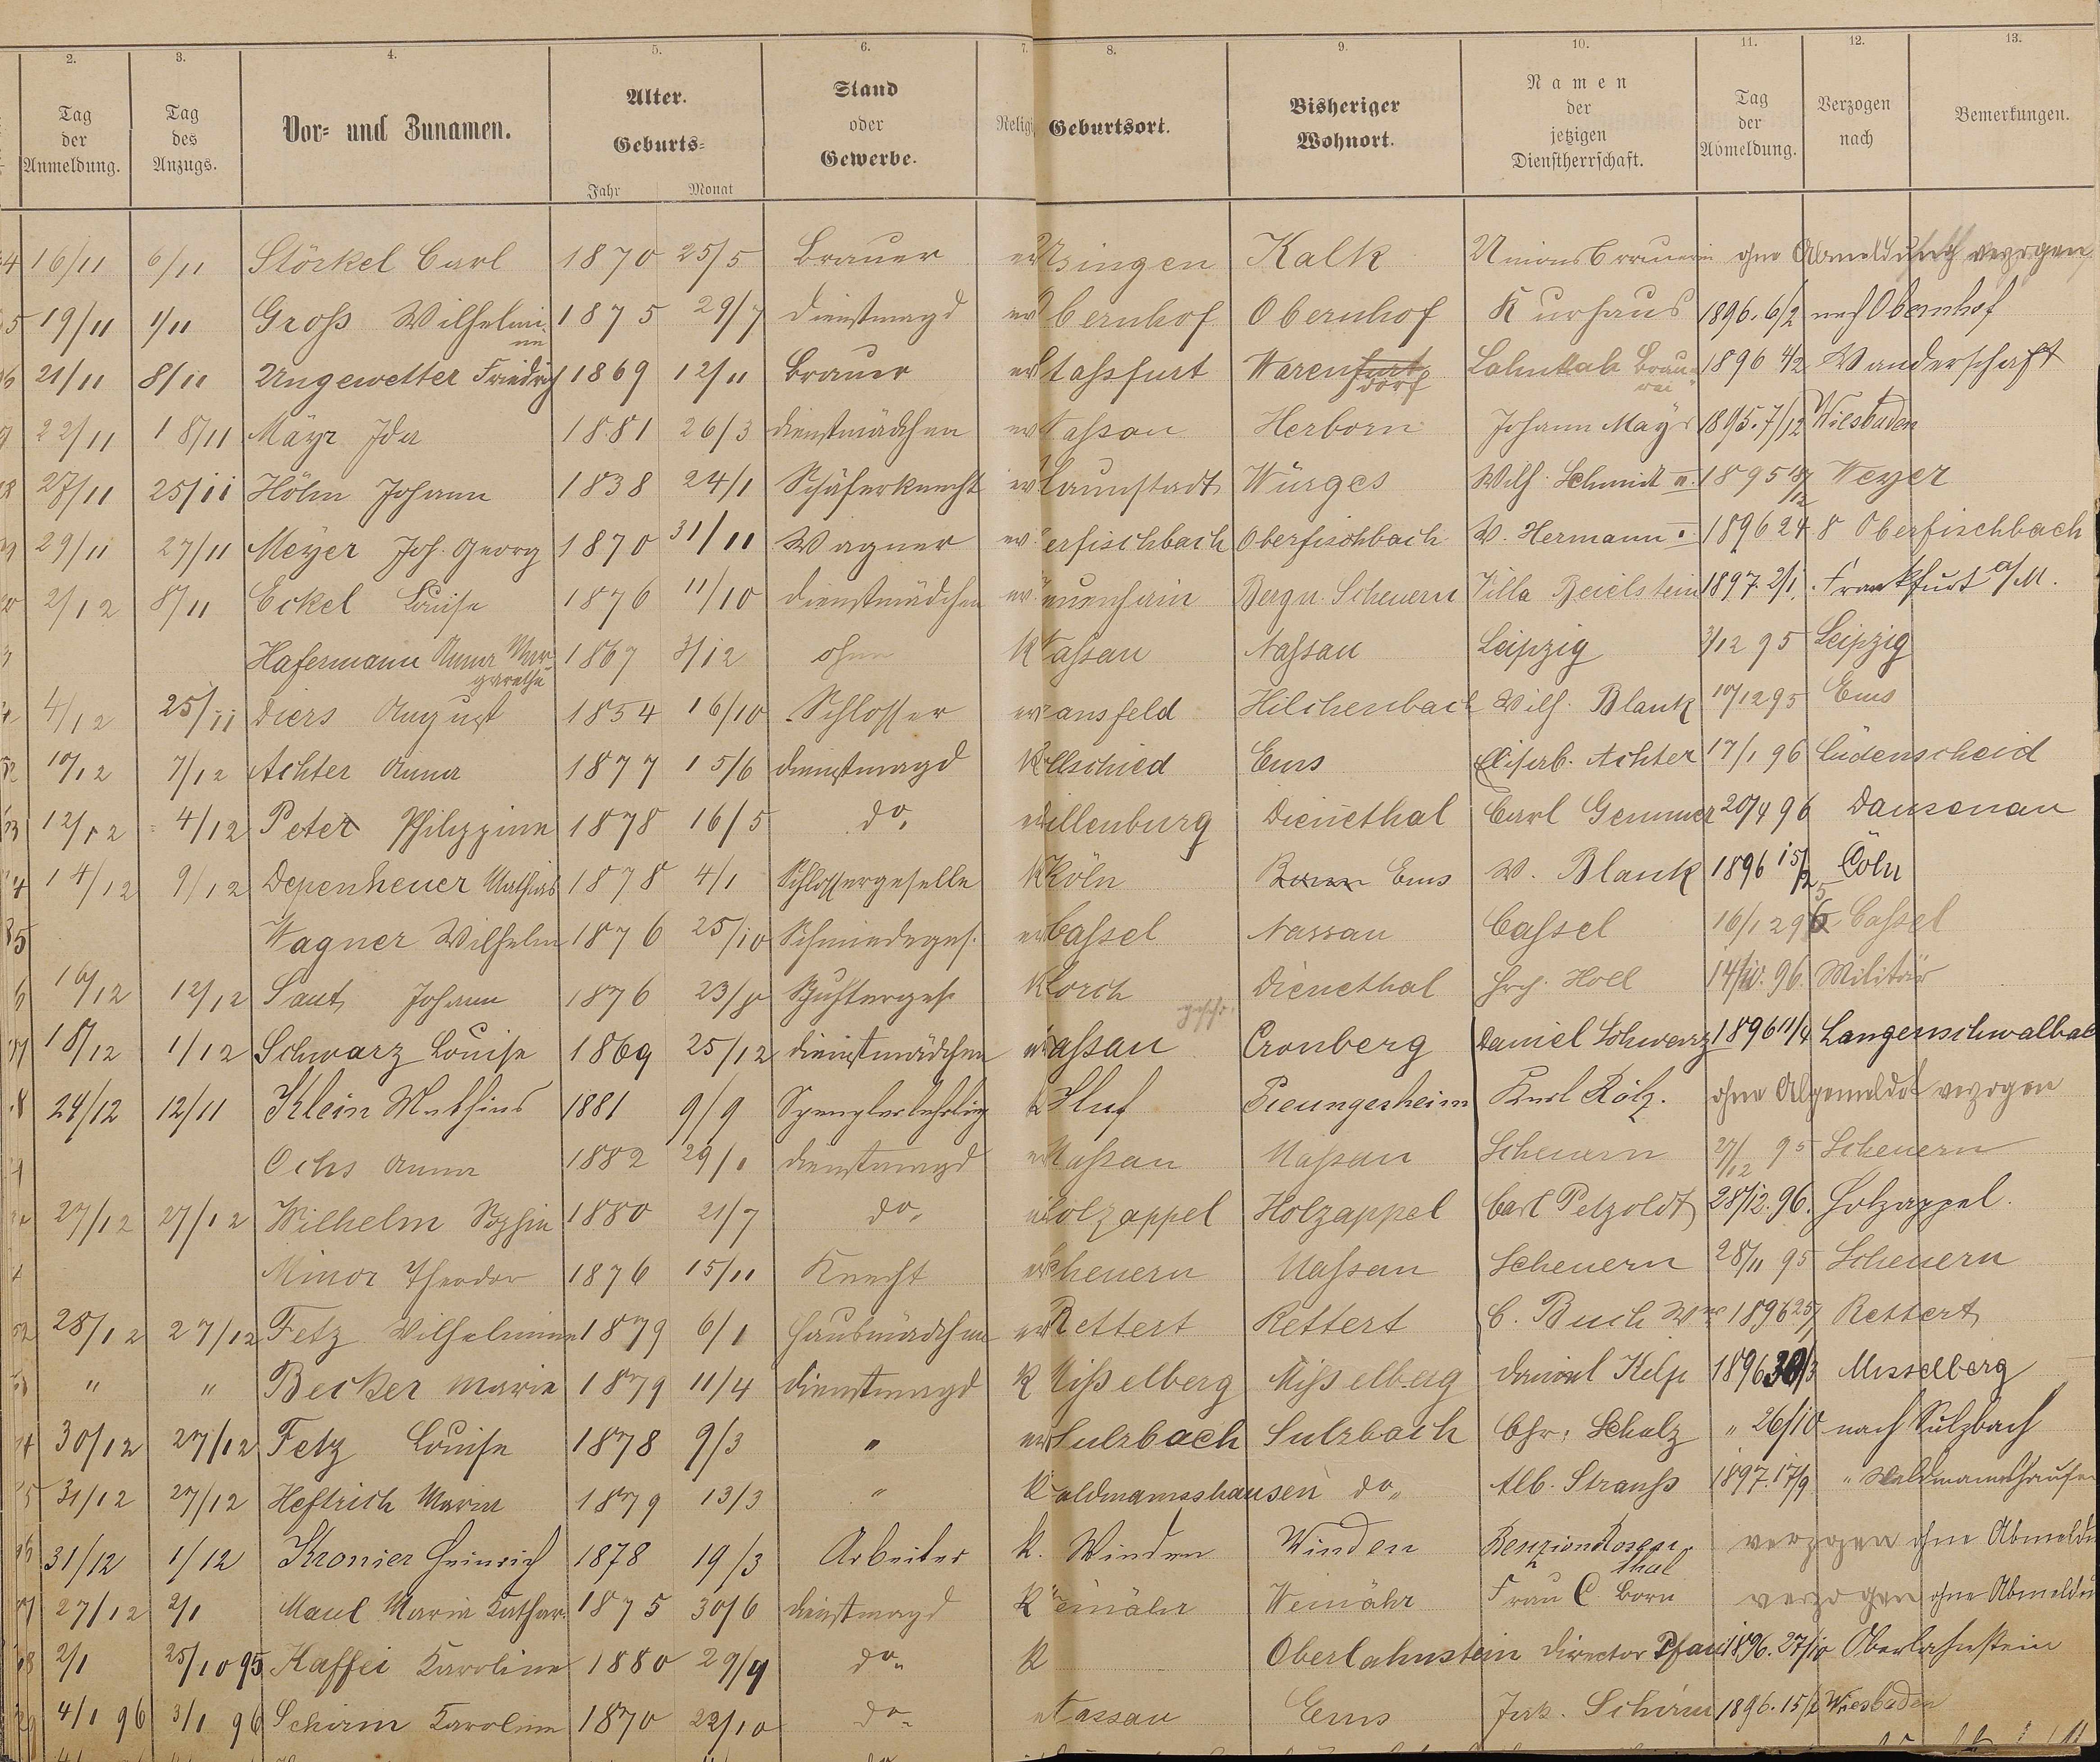 2. 3. 4. 5. 6. 7. 8. 9. 10. 11. 12. 13.
Tag der Anmeldung. Tag des Anzugs. Vor- und Zunamen. Alter. Geburts- Jahr Monat Stand oder Gewerbe. Religi Geburtsort. Bisheriger Wohnort. Namen der jetzigen Dienstherrschaft. Tag der Abmeldung. Verzogen nach Bemerkungen.
16/11 6/11 Störkel Carl 1870 25/5 Brauer ev Usingen Kalk Unionsbrauerei ohne Abmeldung verzogen
19/11 1/11 Groß Wilhelmine 1875 29/7 Dienstmagd ev Obernhof Obernhof Kurhaus 1896. 6/2 nach Obernhof
21/11 8/11 Ungewetter Friedrich 1869 12/11 Brauer ev Staßfurt Warenfurtdorf Lahnthal Brauerei 1896 4/2 Wanderschaft
22/11 18/11 Mayr Ida 1881 26/3 Dienstmädchen ev Naßau Herborn Johann Mayr 1895. 7/12 Wiesbaden
27/11 25/11 Höhn Johann 1838 24/1 Schäferknecht ev Launstadt Würges Wilh. Schmidt 1895 18/12 Weyer
29/11 27/11 Meyer Joh. Georg 1870 31/11 Wagner ev erfischbach Oberfischbach W. Hermann 1896 24 8 Oberfischbach
2/12 8/11 Eckel Louise 1876 11/10 Dienstmädchen ev euenhain Bergn. Scheuern Villa Beielstein 1897. 2/1. Frankfurt a/M.
Hafermann Anna Margarethe 1867 3/12 ohne K Naßau Naßau Leipzig 3/12 95 Leipzig
4/12 25/11 Diers August 1854 16/10 Schlosser ev ansfeld Hilchenbach Wilh. Blank 10/12 95 Ems
10/12 7/12 Achter Anna 1877 15/6 Dienstmagd K ellschied Ems Elisab. Achter 17/1 96 Lüdenscheid
12/12 4/12 Peter Philippine 1878 16/5 do. ev illenburg Dienethal Carl Gemmer 20/4 96 Dausenau
14/12 9/12 Depenheuer Mathias 1878 4/1 Schlossergeselle K Köln Bonn Ems W. Blank 1896 15/2 Cöln
Wagner Wilhelm 1876 25/10 Schmiedeges. ev Caßel Nassau Caßel 16/12 95 Caßel
16/12 12/12 Saut Johann 1876 23/ Schusterges. K Lorch Dienethal Hch. Holl 14/10. 96. Militär
18/12 1/12 Schwarz Louise 1869 25/12 Dienstmädchen ev aßau Cronberg Daniel Schwarz 1896 11/4 Langenschwalbac
24/12 12/11 Klein Mathias 1881 9/9 Spenglerlehrling k Preungesheim Karl Rölz. ohne Abgemeldet verzogen
Ochs Anna 1882 29/1 Dienstmagd ev Naßau Naßau Scheuern 27/12 95 Scheuern
27/12 27/12 Wilhelm Sophie 1880 21/7 do. ev Holzappel Holzappel Carl Petzoldt 28/12. 96. Holzappel.
Minor Theodor 1876 15/11 Knecht ev cheuern Naßau Scheuern 28/11 95 Scheuern
28/12 27/12 Fetz Wilhelmine 1879 6/1 Hausmädchen ev Rettert Rettert C. Buch Wwe 1896 25/ Rettert
" " Becker Marie 1879 11/4 Dienstmagd K Mißelberg Mißelberg Daniel Kelp 1896 30/3 Misselberg
30/12 27/12 Fetz Louise 1878 9/3 " ev Sulzbach Sulzbach Chr. Schulz " 26/10 nach Sulzbach
31/12 27/12 Heftrich Maria 1879 13/3 " K aldmannshausen do. Alb. Strauß 1897. 17/9 " Waldmannshause
31/12 1/12 Kronier Heinrich 1878 19/3 Arbeiter k. Winden Winden Benzion Rosenthal verzogen ohne Abmeldu
27/12 2/1 Maul Maria Kathar. 1875 30/6 Dienstmagd K Weinähr Weinähr Frau C. Born verzogen ohne Abmeldu
2/1 25/10 95 Kaffei Karoline 1880 29/9 do. K Oberlahnstein Director Pfau 1896. 27/10 Oberlahnstein
4/1 96 3/1 96 Schirm Karoline 1870 22/10 do. Nassau Ems Jak. Schirm 1896. 15/2 Wiesbaden